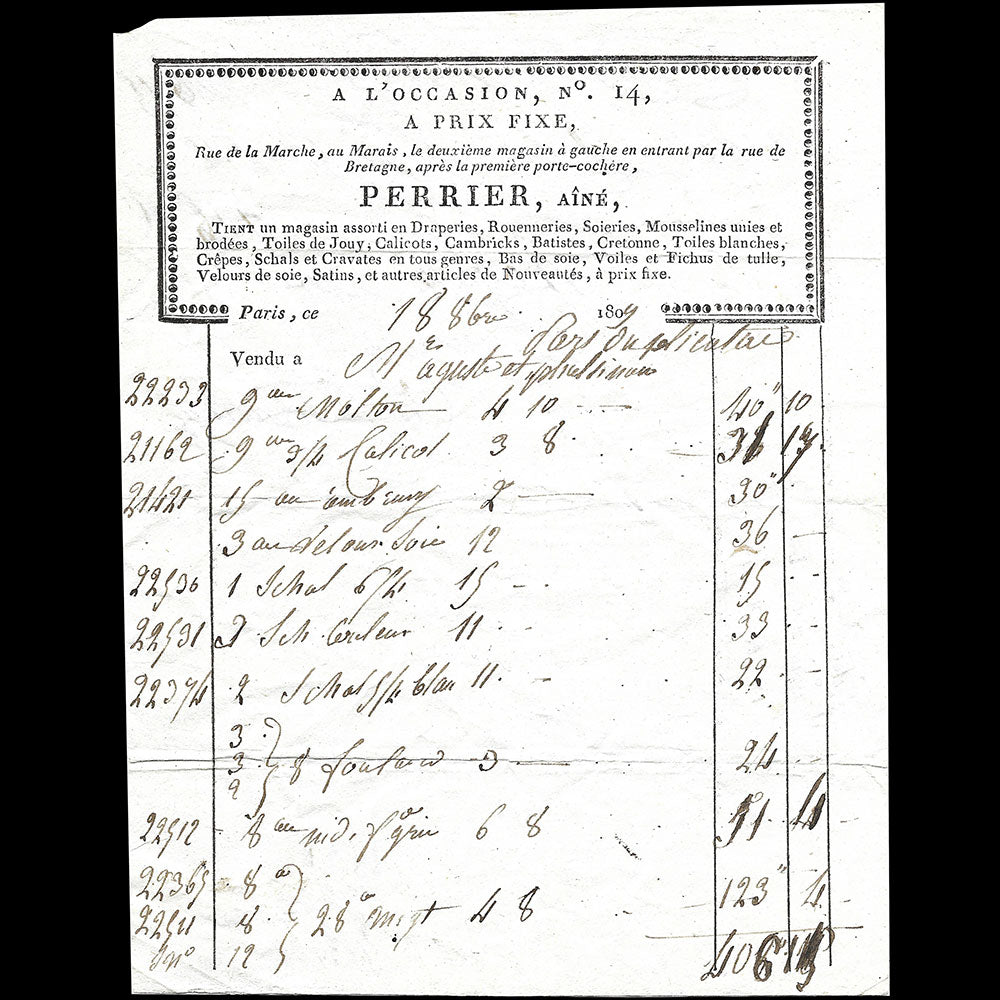 A L'OCCASION, Nº. 14,
A PRIX FIXE,
Rue de la Marche, au Marais, le deuxième magasin à gauche en entrant par la rue de
Bretagne, après la première porte-cochère,
PERRIER, AÎNÉ,
TIENT un magasin assorti en Draperies, Rouenneries, Soieries, Mousselines unies et
brodées, Toiles de Jouy, Calicots, Cambricks, Batistes, Cretonne, Toiles blanches,
Crêpes, Schals et Cravates en tous genres, Bas de soie, Voiles et Fichus de tulle,
Velours de soie, Satins, et autres articles de Nouveautés, à prix fixe.
Paris, ce 18 8bre 180
Vendu a
22233 9 au Molton 4 10 40 10
21162 9 au 3/4 Calicot 3 8
21421 15 au 2 30
3 au Velour Soie 12 36
22530 1 Schal 6/4 15 15
22531 3 Sch Couleur 11 33
22374 2 Schal 5/4 blan 11 22
3
3 8 foulard 3 24
2
22512 8 au 6 8 51 4
22365 8
22511 8 28 4 8 123 4
12
406